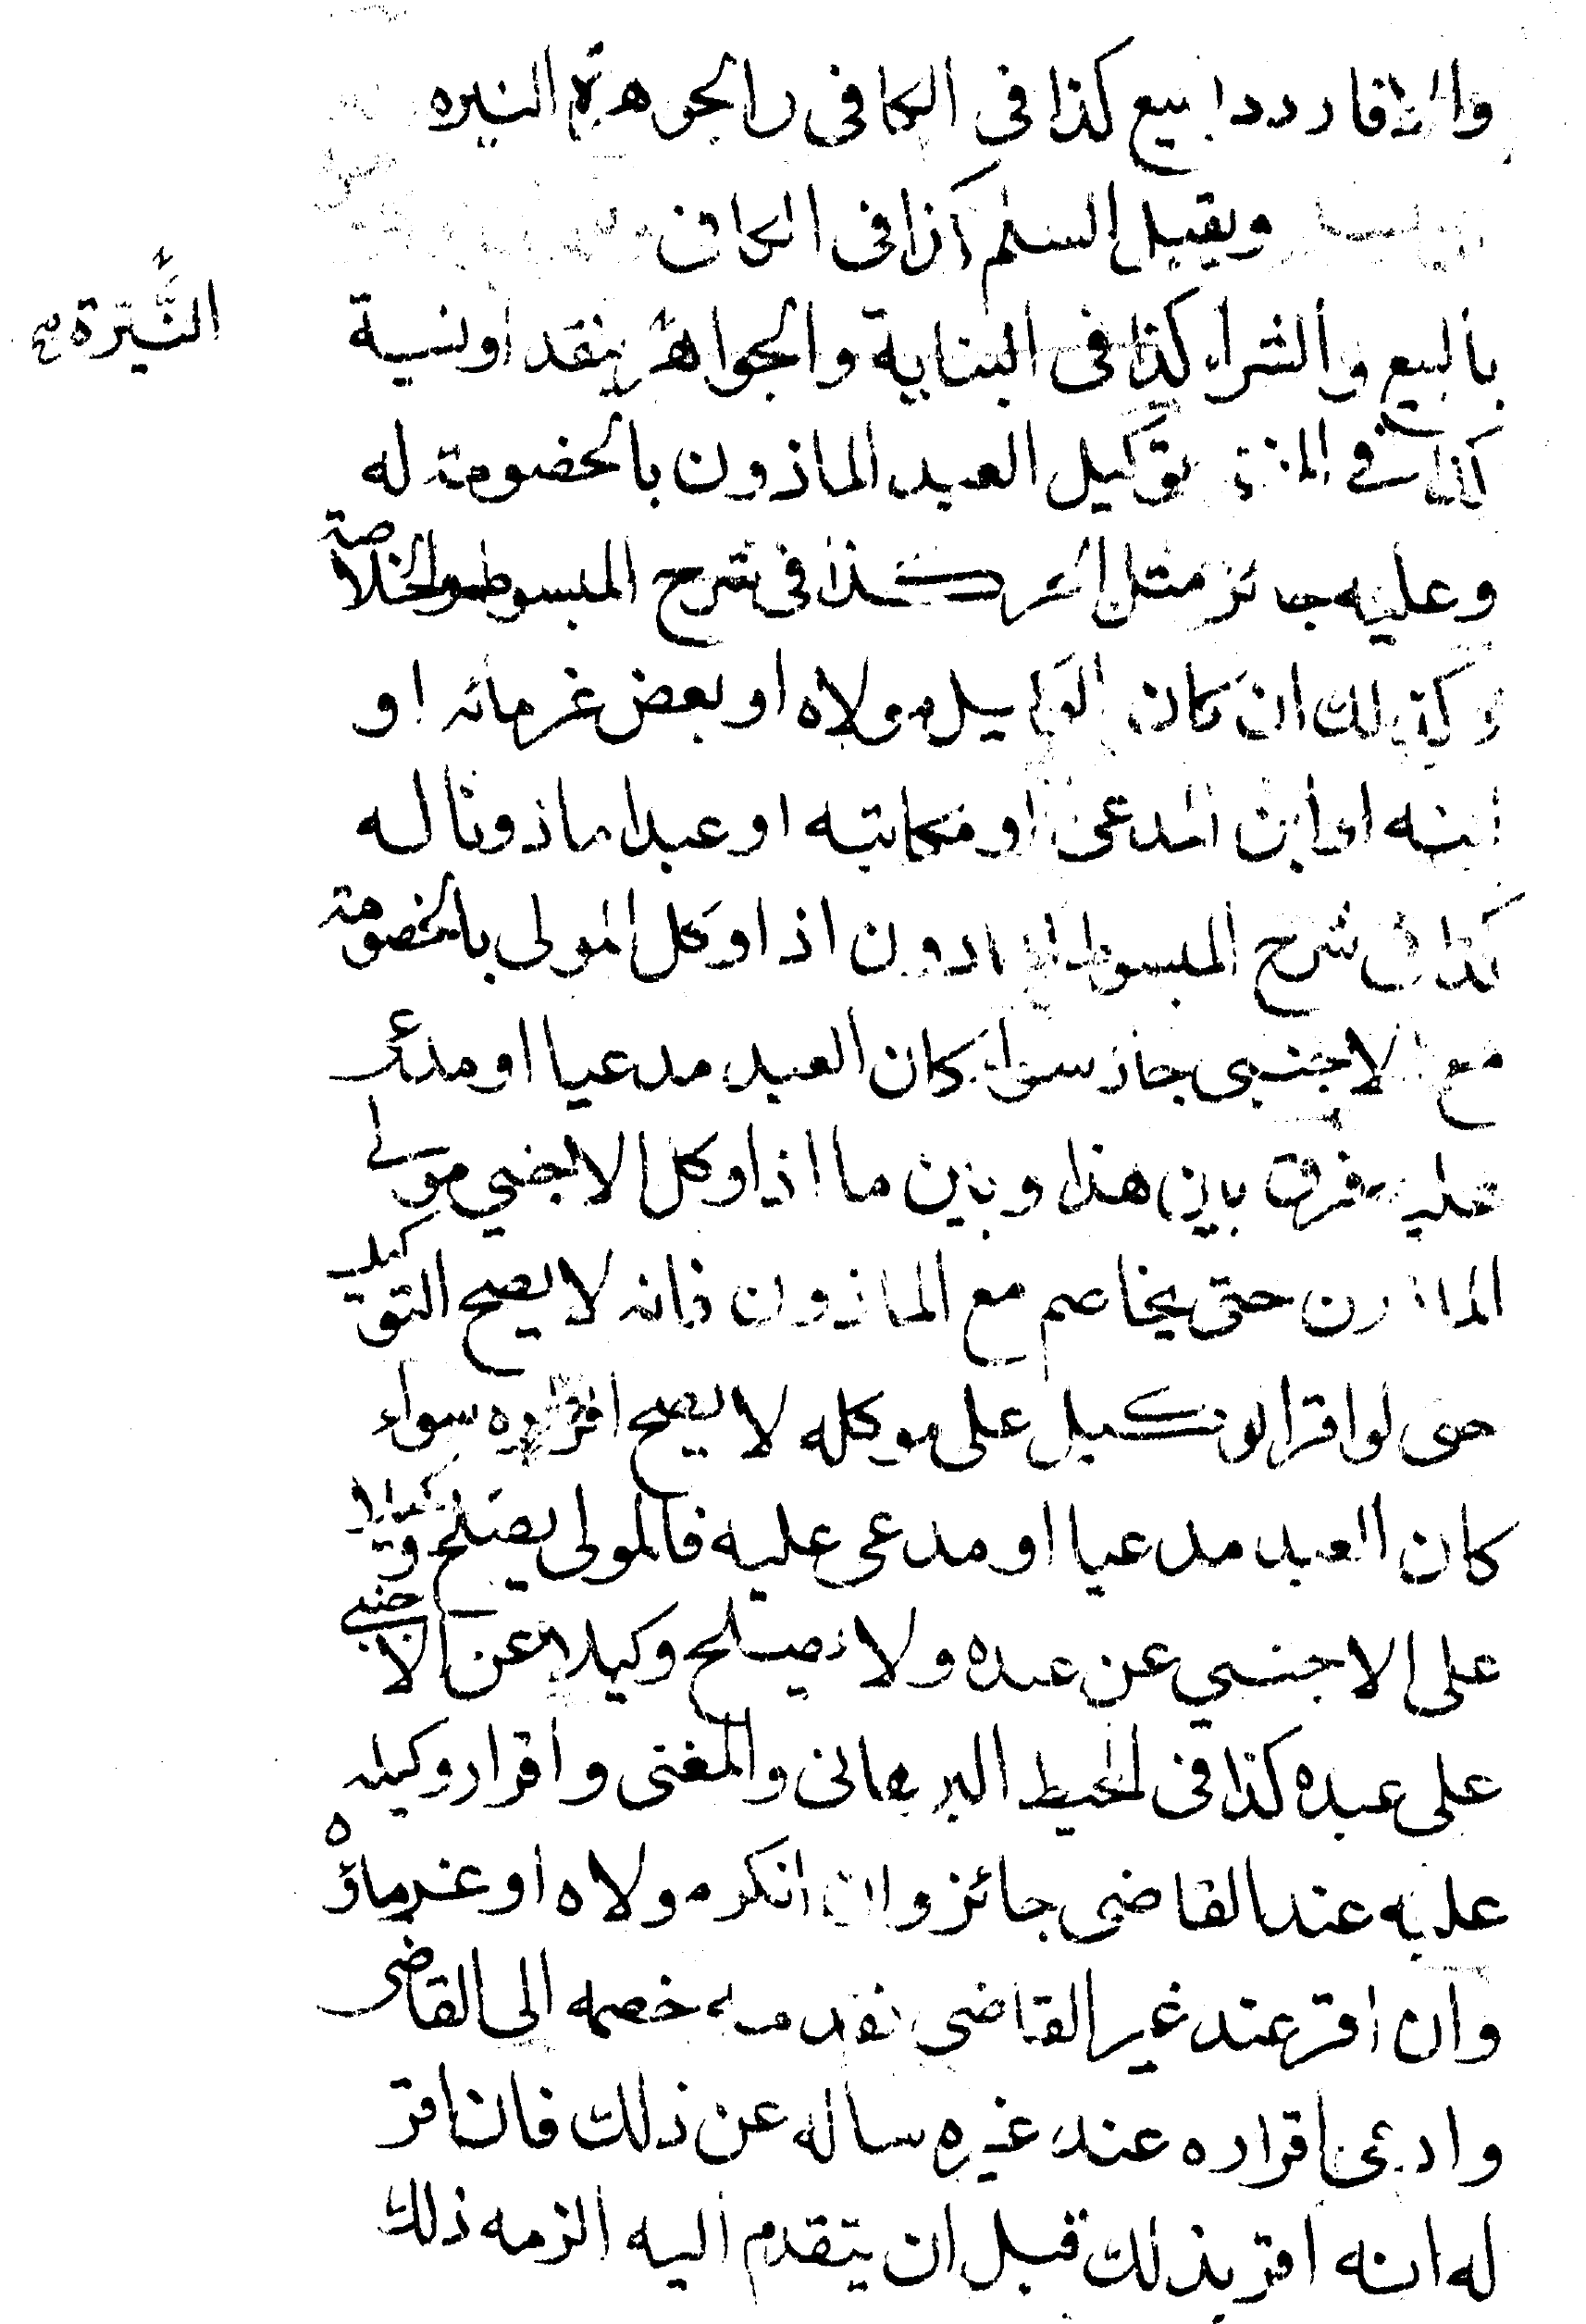 كذا في الكافي والجوهرة النيره
ويقبل السلم كذا في الكافي
بالبيع والشراء كذا في البناية والجواهر بنقد او نسية
النَّيِّرة صح
كذا في توكيل العبد الماذون بالخصومة له
وعليه جائز مثل الحر كذا في شرح المبسوط والخلاصة
وكذلك ان كان الوكيل مولاه او بعض غرمائه او
ابنه او ابن المدعى او مكاتبه او عبدا ماذونا له
كذا في شرح المبسوط الماذون اذا وكل المولى بالخصومة
مع الاجنبي جاز سواء كان العبد مدعيا او مدعى
عليه فرق بين هذا وبين ما اذا وكل الاجنبي مولى
الماذون حتى يخاصم مع الماذون فانه لا يصح التوكيل
حتى لو اقر الوكيل على موكله لا يصح اقراره سواء
كان العبد مدعيا او مدعى عليه فالمولى يصلح وكيلا
على الاجنبي عن عبده ولا يصلح وكيلا عن الاجنبي
على عبده كذا في المحيط البرهاني والمغنى واقرار وكيله
عليه عند القاضى جائز وان انكر مولاه او غرماؤه
وان اقر عند غير القاضى فقدمه خصمه الى القاضى
وادعى اقراره عند غيره ساله عن ذلك فان اقر
له انه اقر بذلك قبل ان يتقدم اليه الزمه ذلك